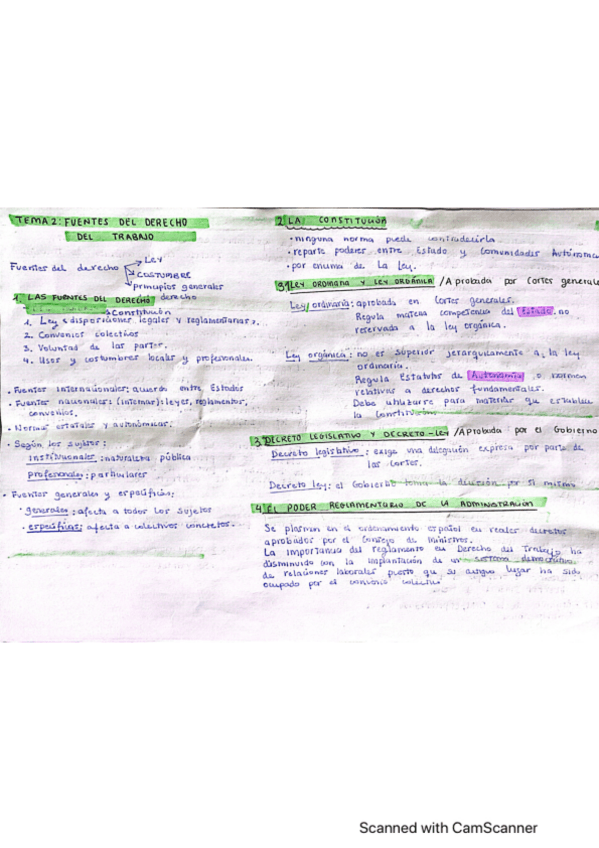 TEMA 2: FUENTES DEL DERECHO
DEL TRABAJO
Fuentes del derecho
LEY
COSTUMBRE
Principios generales
1. LAS FUENTES DEL DERECHO derecho
Constitución
1. Ley « disposiciones legales y reglamentarias».
2. Convenios colectivos
3. Voluntad de las partes.
4. Usos y costumbres locales y profesionales.
• Fuentes internacionales: acuerdos entre Estados
• Fuentes nacionales (internas): leyes, reglamentos,
convenios.
• Normas estatales y autonómicas.
• Según los sujetos:
institucionales: naturaleza pública
profesionales: particulares
• Fuentes generales y específicas:
• generales: afecta a todos los sujetos
• específicas: afecta a colectivos concretos.
2. LA CONSTITUCIÓN
• ninguna norma puede contradecirla
• reparte poderes entre Estado y Comunidades Autónomas
• por encima de la ley.
3. LEY ORDINARIA Y LEY ORGÁNICA / Aprobada por Cortes generales
Ley ordinaria: aprobada en Cortes generales.
Regula materias competencia del Estado no
reservada a la ley orgánica.
Ley orgánica: no es superior jerárquicamente a la ley
ordinaria.
Regula Estatutos de Autonomía o normas
relativas a derechos fundamentales.
Debe utilizarse para materias que establece
la Constitución
3. DECRETO LEGISLATIVO Y DECRETO-LEY / Aprobada por el Gobierno
Decreto legislativo: exige una delegación expresa por parte de
las Cortes.
Decreto Ley: el Gobierno toma la decisión por sí mismo
4. EL PODER REGLAMENTARIO DE LA ADMINISTRACIÓN
Se plasman en el ordenamiento español en reales decretos
aprobados por el Consejo de Ministros.
La importancia del reglamento en Derecho del Trabajo ha
disminuido con la implantación de un sistema democrático
de relaciones laborales puesto que su antiguo lugar ha sido
ocupado por el convenio colectivo
Scanned with CamScanner